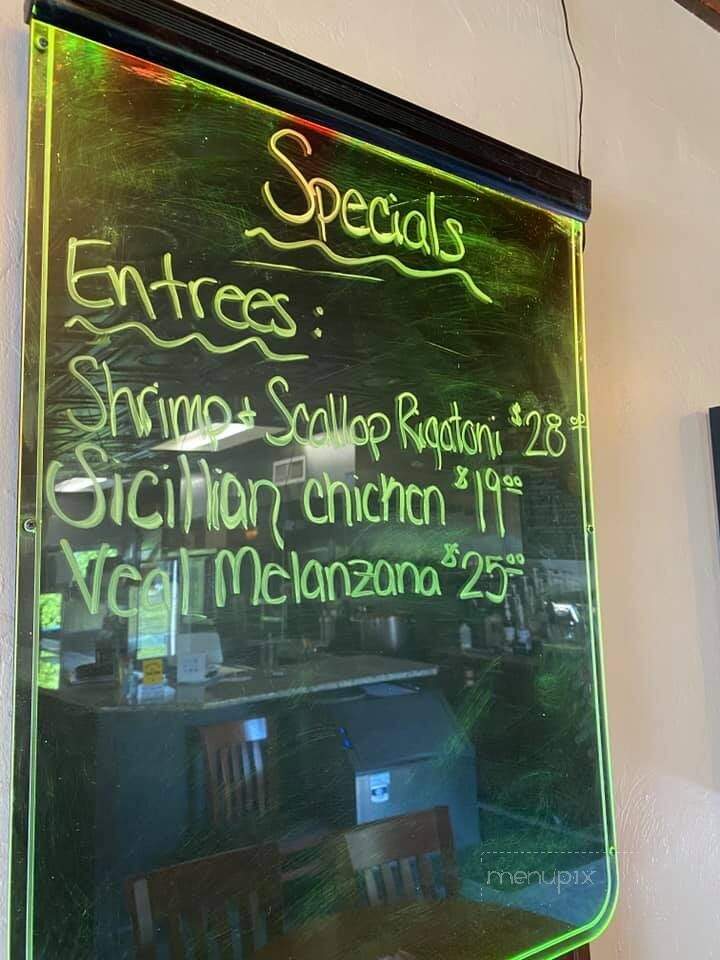 Specials
Entrees:
Shrimp + Scallop Rigatoni $28.00
Sicillian chicken $19.00
Veal Melanzana $25.00
menupix